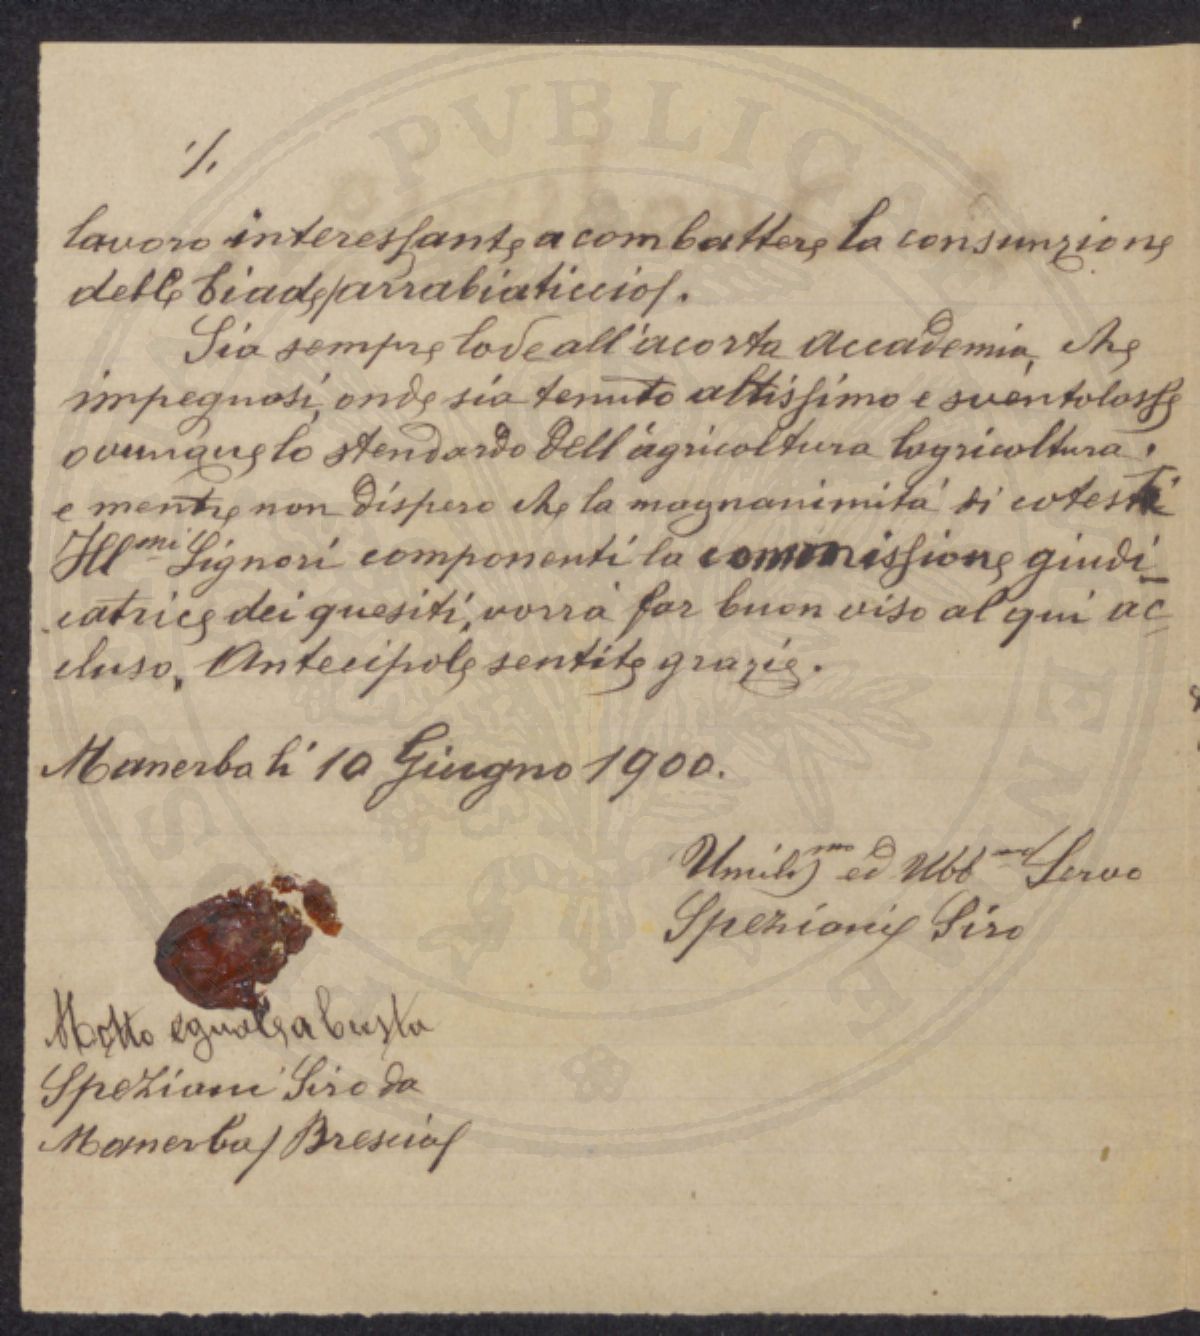 ./.
lavoro interessante a combattere la consunzione
delle biade /arrabiaticcio/.
Sia sempre lode all'acorta Accademia, che
impegnasi, onde sia tenuto altissimo e sventolasse
ovunque lo stendardo dell'agricoltura lagricoltura.
e mentre non dispero che la magnanimitá di cotesti
Ill.mi Signori componenti la commissione giudi-
catrice dei quesiti, vorrá far buon viso al qui ac=
cluso, Antecipole sentite grazie.
Manerba li 10 Giugno 1900.
Umilmo ed Ubbmo Servo
Speziani Siro
Motto eguale a busta
Speziani Siro da
Manerba / Brescia/
PVBLICAE